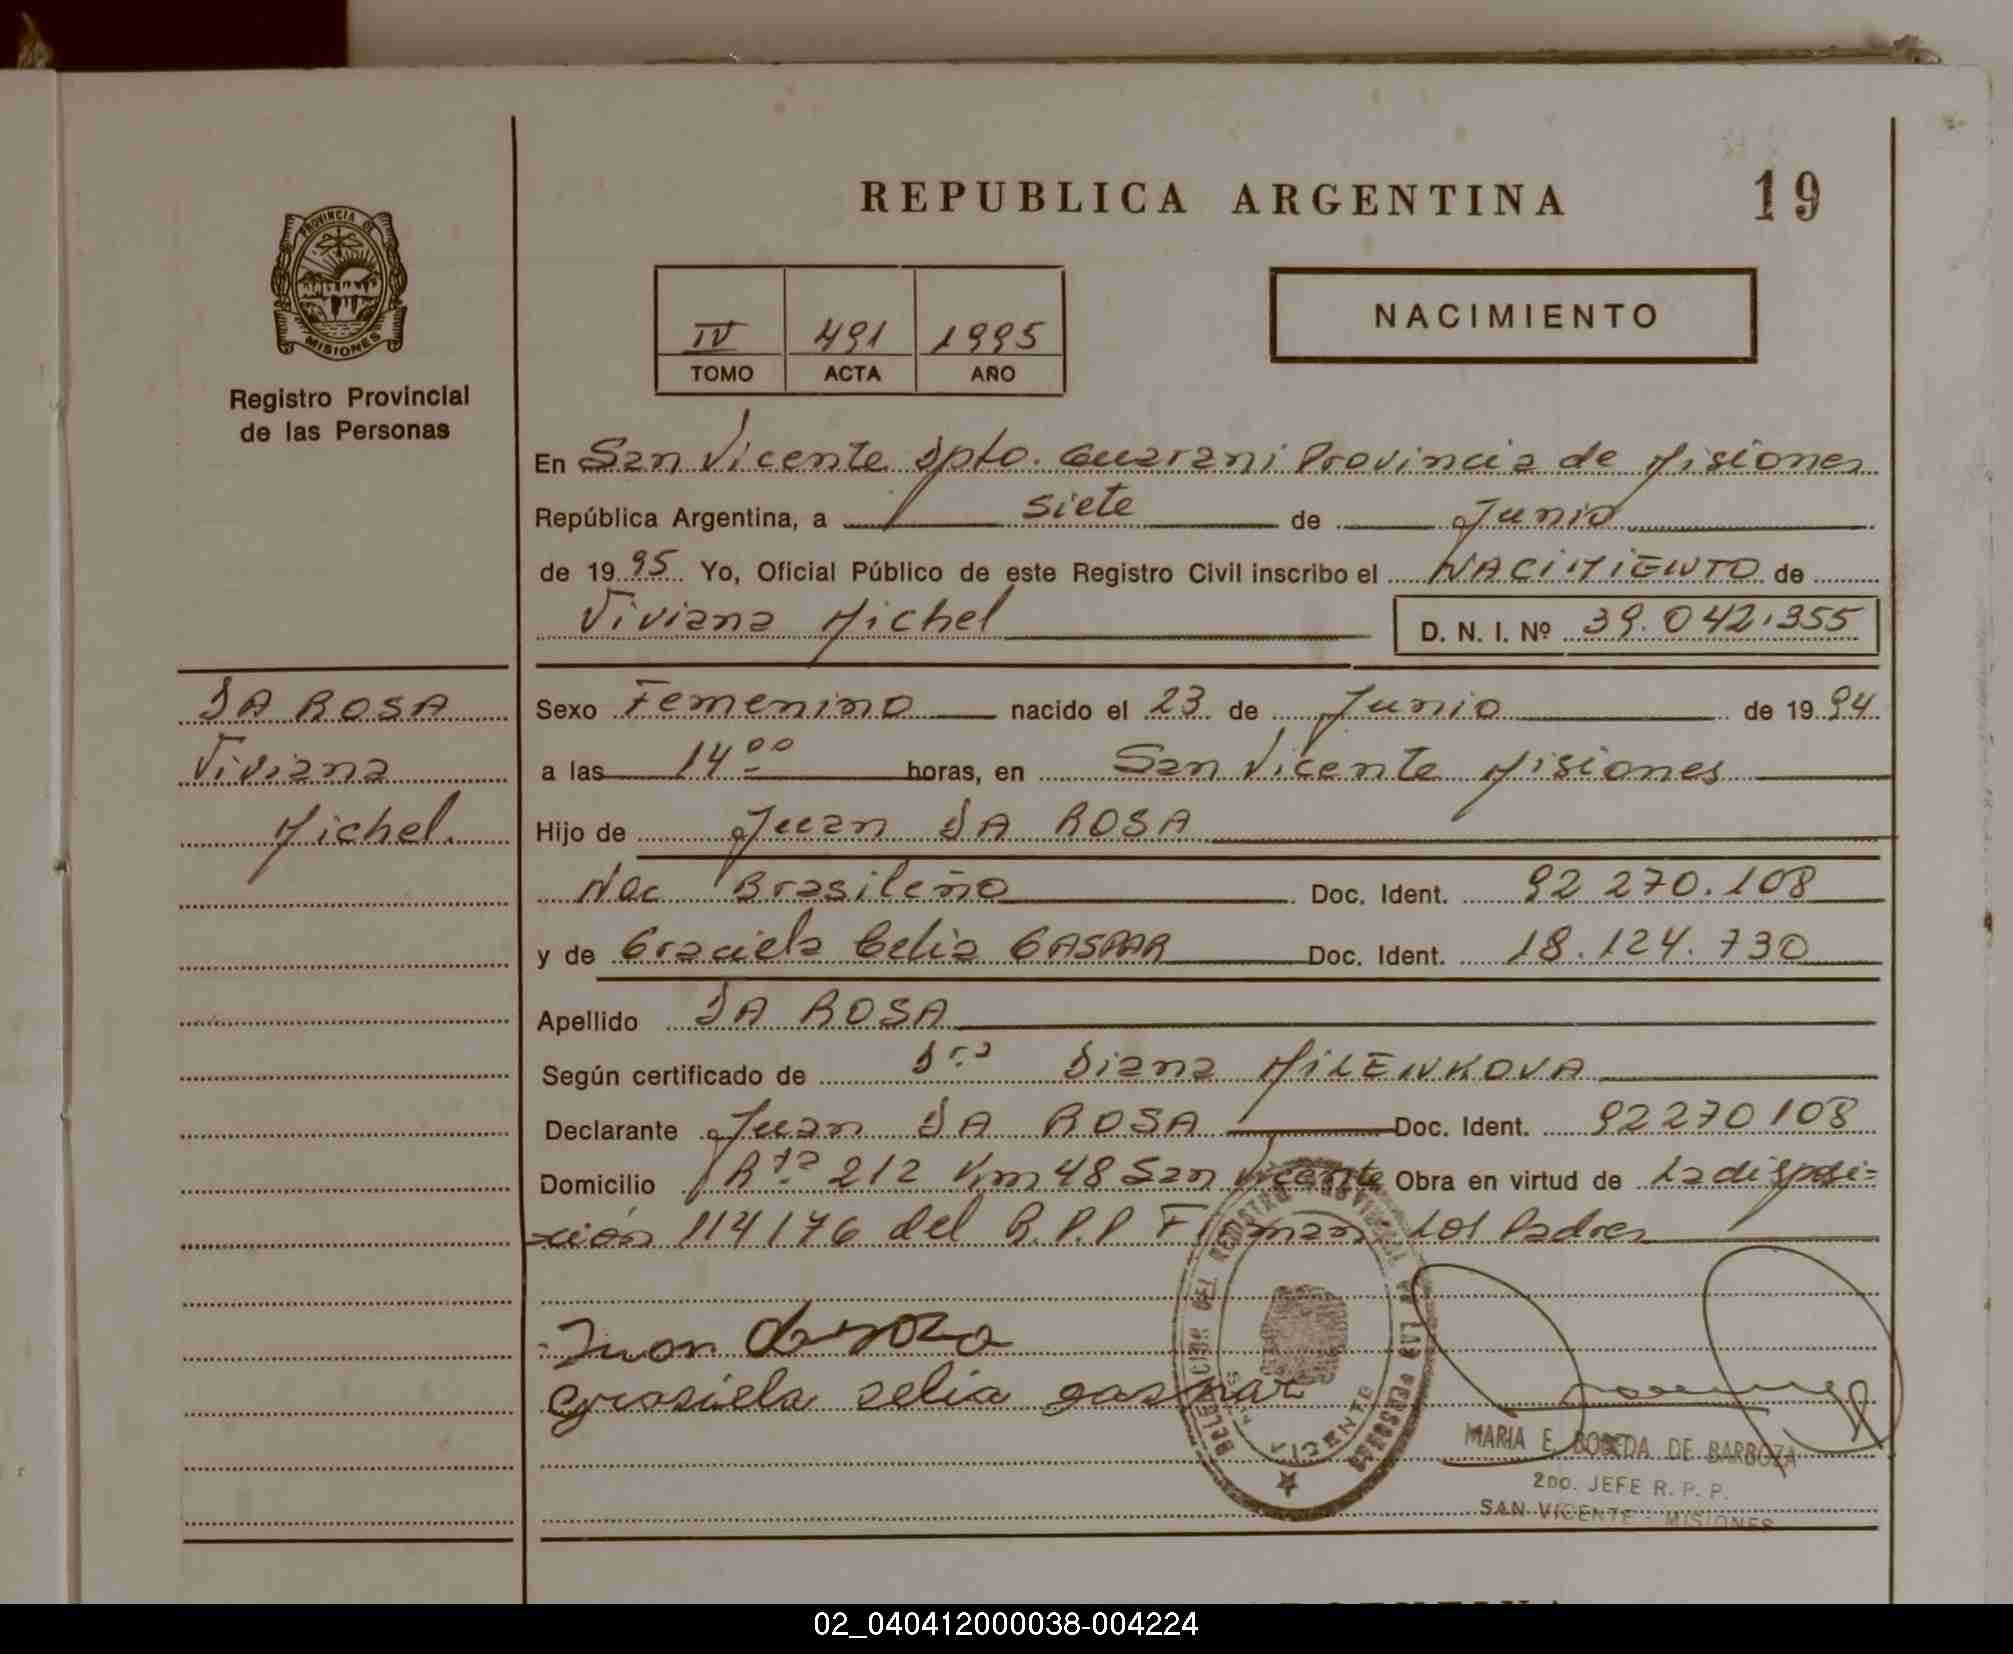 REPUBLICA ARGENTINA
19
PROVINCIA DE
MISIONES
Registro Provincial
de las Personas
IV 491 1995
TOMO ACTA AÑO
NACIMIENTO
En San Vicente Dpto. Guarani Provincia de Misiones
República Argentina, a siete de Junio
de 1995 Yo, Oficial Público de este Registro Civil inscribo el NACIMIENTO de
Viviana Michel D. N. I. Nº 39.042.355
DA ROSA
Viviana
Michel.
Sexo Femenino nacido el 23 de Junio de 1994
a las 14 00 horas, en San Vicente Misiones
Hijo de Juan DA ROSA
Nac Brasileño Doc. Ident. 92 270.108
y de Graciela Celia GASPAR Doc. Ident. 18.124.730
Apellido DA ROSA
Según certificado de Dra Diana MILENKOVA
Declarante Juan DA ROSA Doc. Ident. 92270108
Domicilio Rta 212 Km 48 San Vicente Obra en virtud de La disposi=
ción 114/76 del R.P.P Firman Los Padres
Juan
grasiela selia gaspar
DELEGACION DEL REGISTRO PROVINCIAL DE LAS PERSONAS
SAN VICENTE
MARIA E. BOBEDA DE BARBOZA
2DO. JEFE R. P. P.
SAN VICENTE - MISIONES
02_040412000038-004224